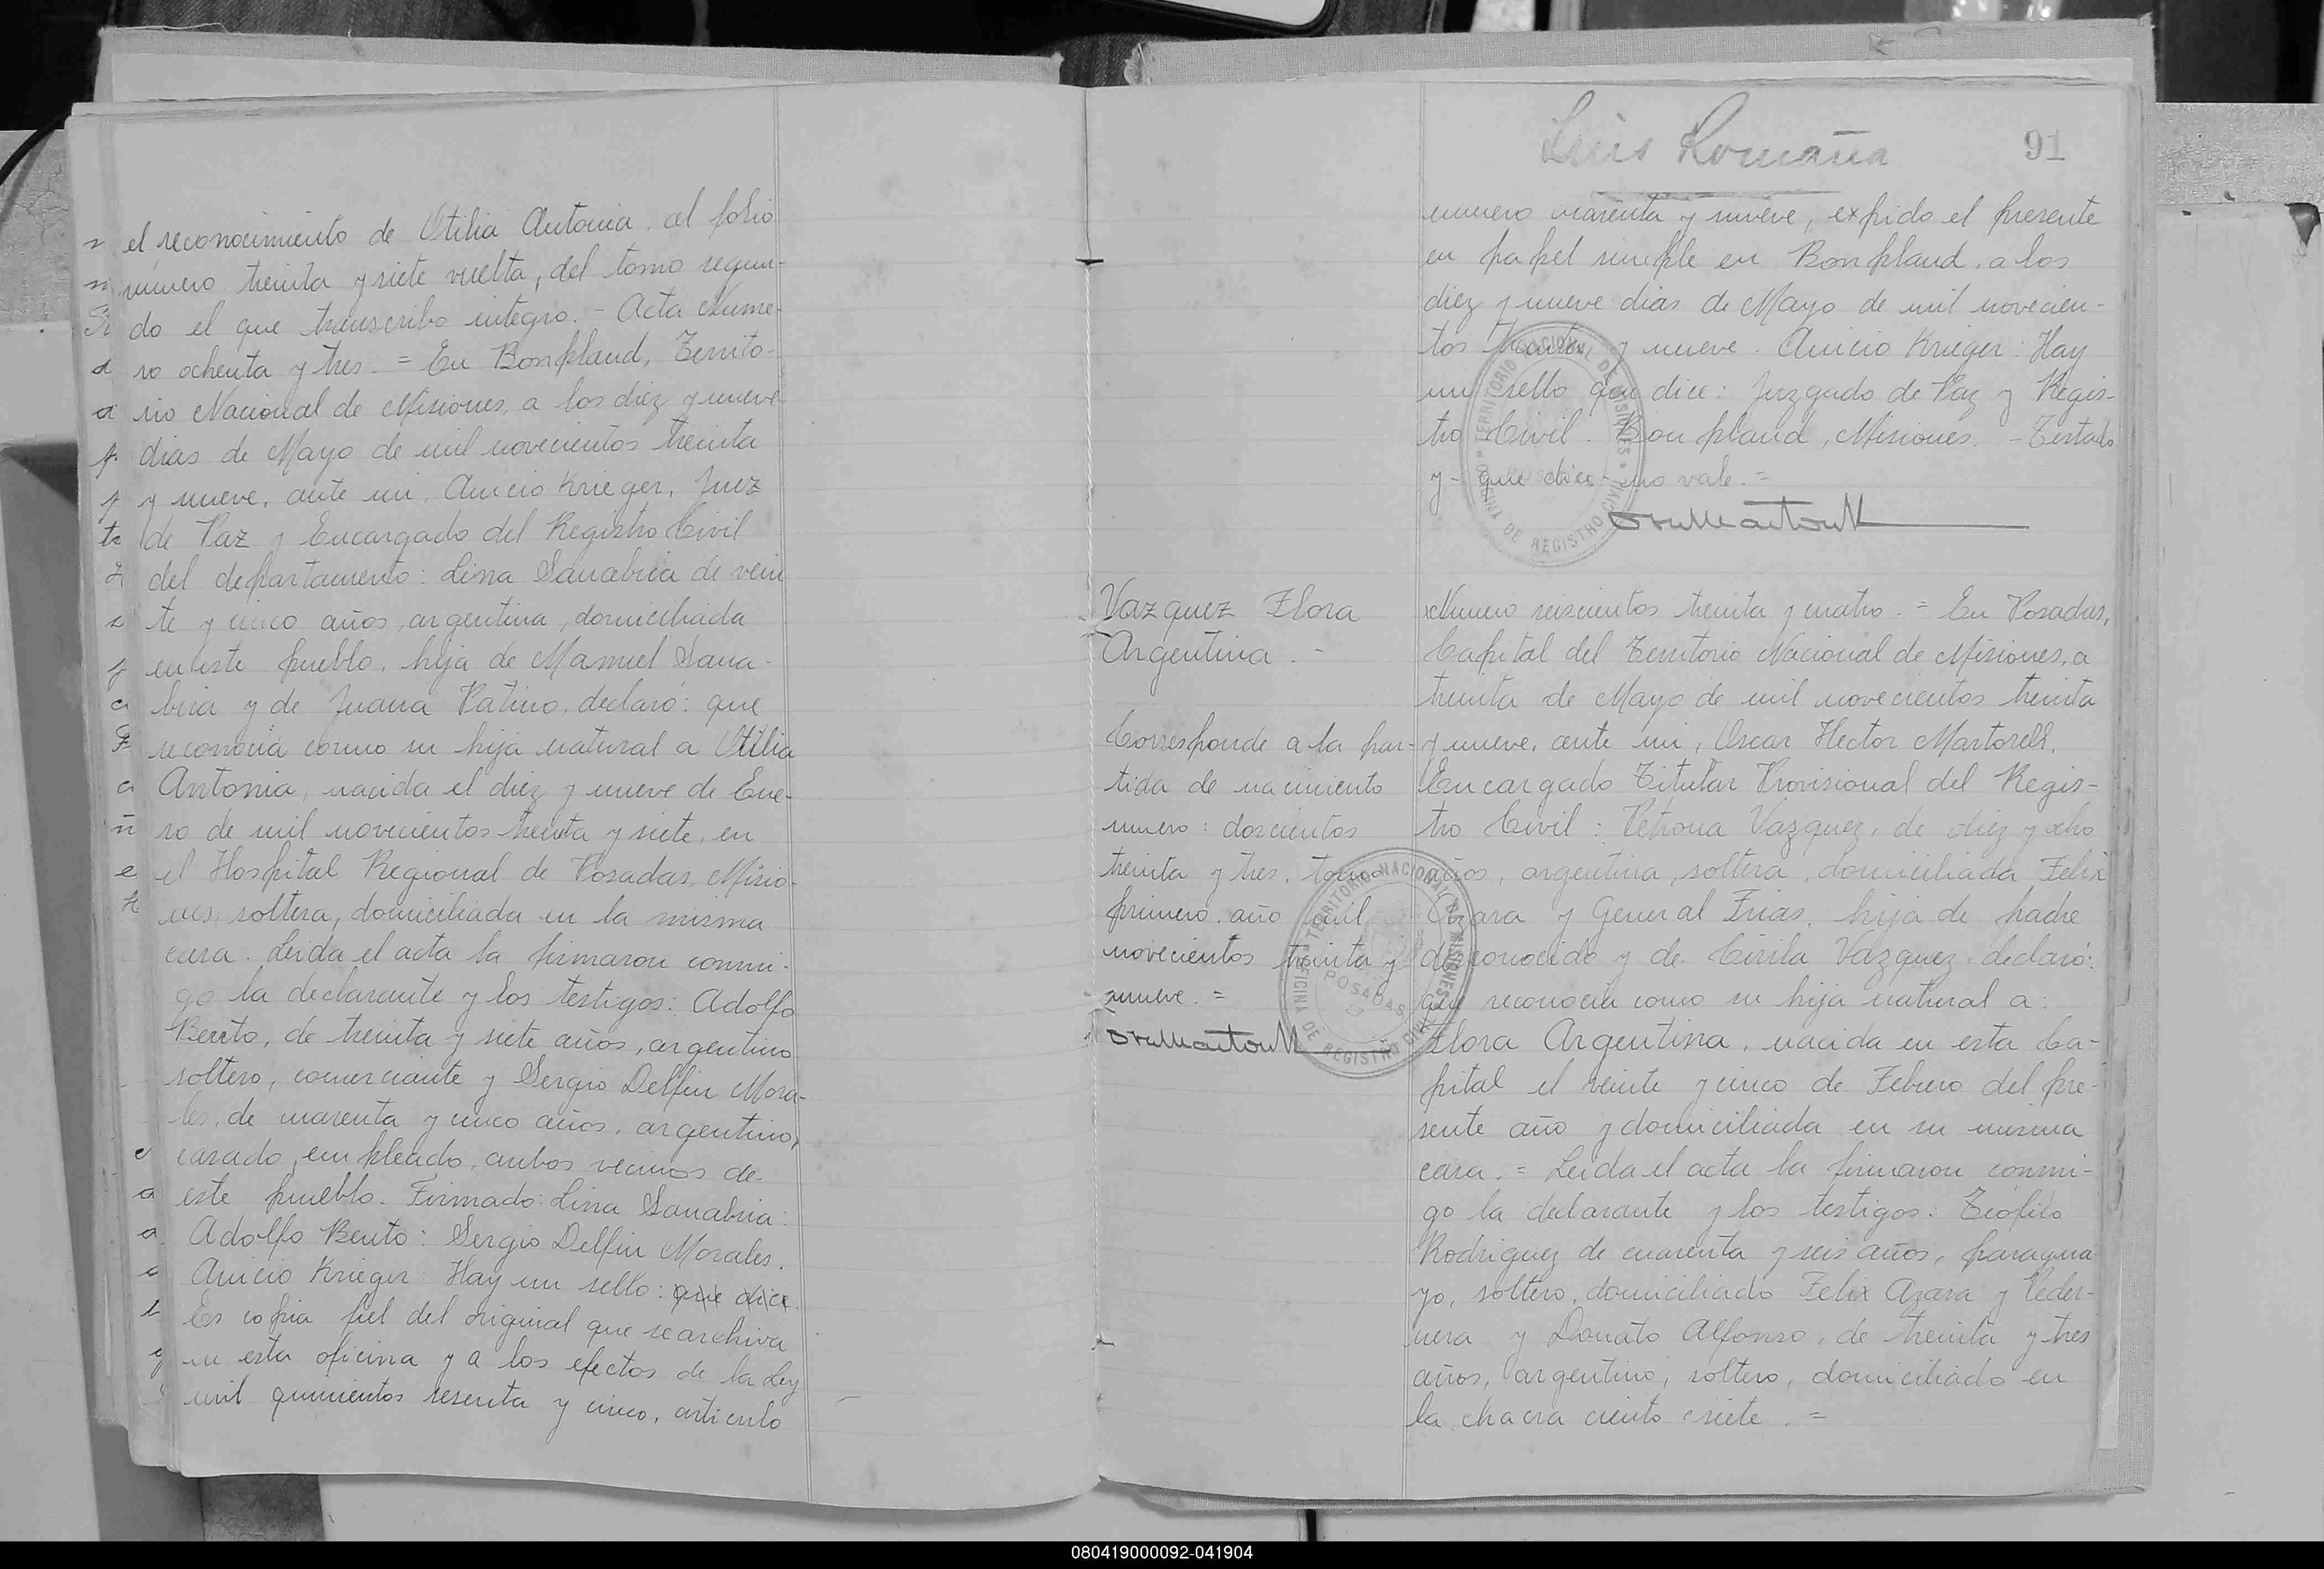 el reconocimiento de Otilia Antonia, al folio
número treinta y siete vuelta, del tomo segun-
do el que transcribo integro. - Acta Núme-
ro ochenta y tres. = En Bonpland, Territo-
rio Nacional de Misiones, a los diez y nueve
dias de Mayo de mil novecientos treinta
y nueve, ante mi, Anicio Krieger, Juez
de Paz y Encargado del Registro Civil
del departamento: Lina Sanabria de vein
te y cinco años, argentina, domiciliada
en este pueblo, hija de Manuel Sana-
bria y de Juana Patino, declaró: que
reconocia como su hija natural a Otilia
Antonia, nacida el diez y nueve de Ene-
ro de mil novecientos treinta y siete, en
el Hospital Regional de Posadas, Misio-
nes, soltera, domiciliada en la misma
casa. Leida el acta la firmaron conmi-
go la declarante y los testigos: Adolfo
Bento, de treinta y siete años, argentino
soltero, comerciante y Sergio Delfin Mora-
les, de cuarenta y cinco años, argentino,
casado, empleado, ambos vecinos de
este pueblo. Firmado: Lina Sanabria:
Adolfo Bento: Sergio Delfin Morales.
Anicio Krieger Hay un sello: que dice.
Es copia fiel del original que se archiva
en esta oficina y a los efectos de la Ley
mil quinientos sesenta y cinco, articulo
Luis Romaña
91
numero cuarenta y nueve, expido el presente
en papel simple en Bonpland, a los
diez y nueve dias de Mayo de mil novecien-
tos treinta y nueve. Anicio Krieger: Hay
un sello que dice: Juzgado de Paz y Regis-
tro Civil. Bonpland, Misiones. - Testado
y - que dice - no vale. =
TERRITORIO NACIONAL DE MISIONES
OFICINA DE REGISTRO CIVIL
POSADAS
Vazquez Flora
Argentina. -
Corresponde a la par-
tida de nacimiento
numero: doscientos
treinta y tres, tomo
primero, año mil
novecientos treinta y
nueve. =
TERRITORIO NACIONAL DE MISIONES
OFICINA DE REGISTRO CIVIL
POSADAS
Numero seiscientos treinta y cuatro. = En Posadas,
Capital del Territorio Nacional de Misiones, a
treinta de Mayo de mil novecientos treinta
y nueve, ante mi, Oscar Hector Martorell,
Encargado Titular Provisional del Regis-
tro Civil: Petrona Vazquez, de diez y ocho
años, argentina, soltera, domiciliada Felix
Azara y General Frias, hija de padre
desconocido y de Cirila Vazquez, declaró:
que reconocia como su hija natural a:
Flora Argentina, nacida en esta Ca-
pital el veinte y cinco de Febrero del pre-
sente año y domiciliada en su misma
casa. = Leida el acta la firmaron conmi-
go la declarante y los testigos: Teófilo
Rodriguez de cuarenta y seis años, paragua
yo, soltero, domiciliado Felix Azara y Peder-
nera y Donato Alfonso, de treinta y tres
años, argentino, soltero, domiciliado en
la chacra ciento siete. =
080419000092-041904